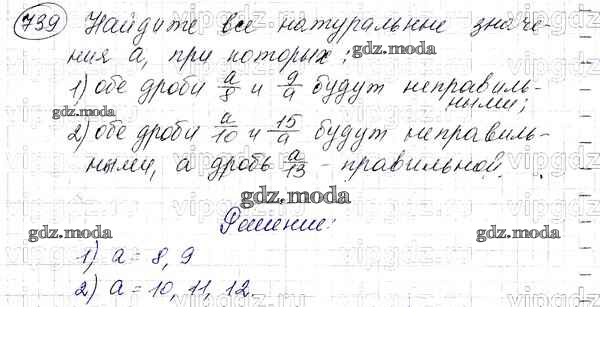 739 Найдите все натуральные значе
ния а, при которых:
gdz.moda
1) обе дроби a/8 и 9/a будут неправиль-
ными;
gdz.moda
2) обе дроби a/10 и 15/a будут неправиль-
ными, а дробь a/13 - правильной.
gdz.moda
Решение:
gdz.moda
gdz.moda
1) a = 8, 9
2) a = 10, 11, 12.